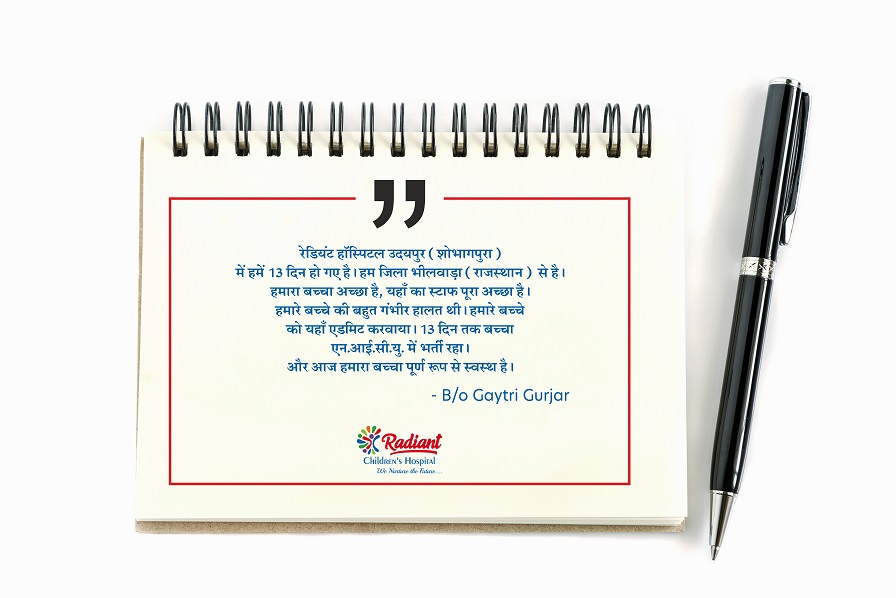 ”
रेडियंट हॉस्पिटल उदयपुर ( शोभागपुरा )
में हमें 13 दिन हो गए है। हम जिला भीलवाड़ा ( राजस्थान ) से है।
हमारा बच्चा अच्छा है, यहाँ का स्टाफ पूरा अच्छा है।
हमारे बच्चे की बहुत गंभीर हालत थी। हमारे बच्चे
को यहाँ एडमिट करवाया। 13 दिन तक बच्चा
एन.आई.सी.यु. में भर्ती रहा।
और आज हमारा बच्चा पूर्ण रूप से स्वस्थ है।
- B/o Gaytri Gurjar
Radiant
Children's Hospital
We Nurture the Future....